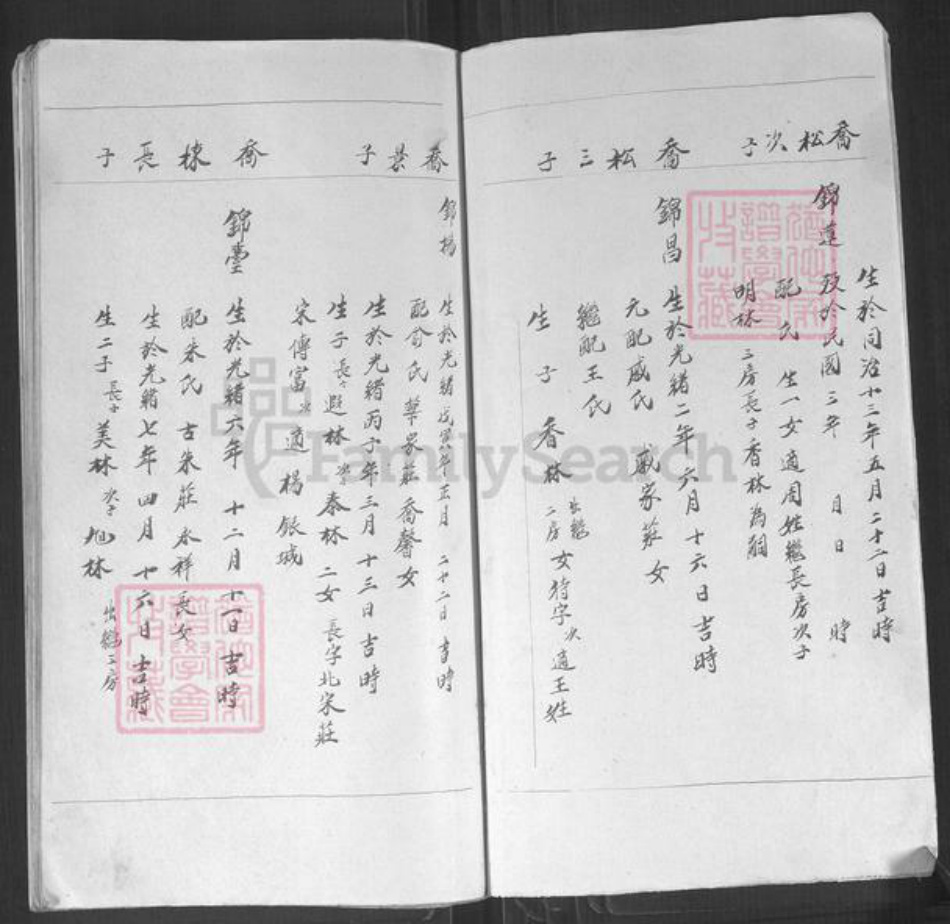 喬松次子
錦蓮
生於同治十三年五月二十二日吉時
歿於民國三年 月 日 時
配 氏 生一女適周姓繼長房次子
明林 三房長子香林為嗣
喬松三子
錦昌
生於光緒二年六月十六日吉時
元配戚氏 戚家莊女
繼配王氏
生 子 香林 出繼二房 女 待字 次適王姓
喬 子
錦楊
生於光緒 年 月二十二日吉時
配俞氏 華家莊喬馨女
生於光緒丙子年三月十三日吉時
生子 長子遐林 次子春林 二女 長字北宋莊
宋傳富 次適楊銀城
喬棟長子
錦臺
生於光緒六年 十二月十一日吉時
配朱氏 古朱莊永祥長女
生於光緒七年四月十六日吉時
生二子 長子美林 次子 林 出繼三房
FamilySearch